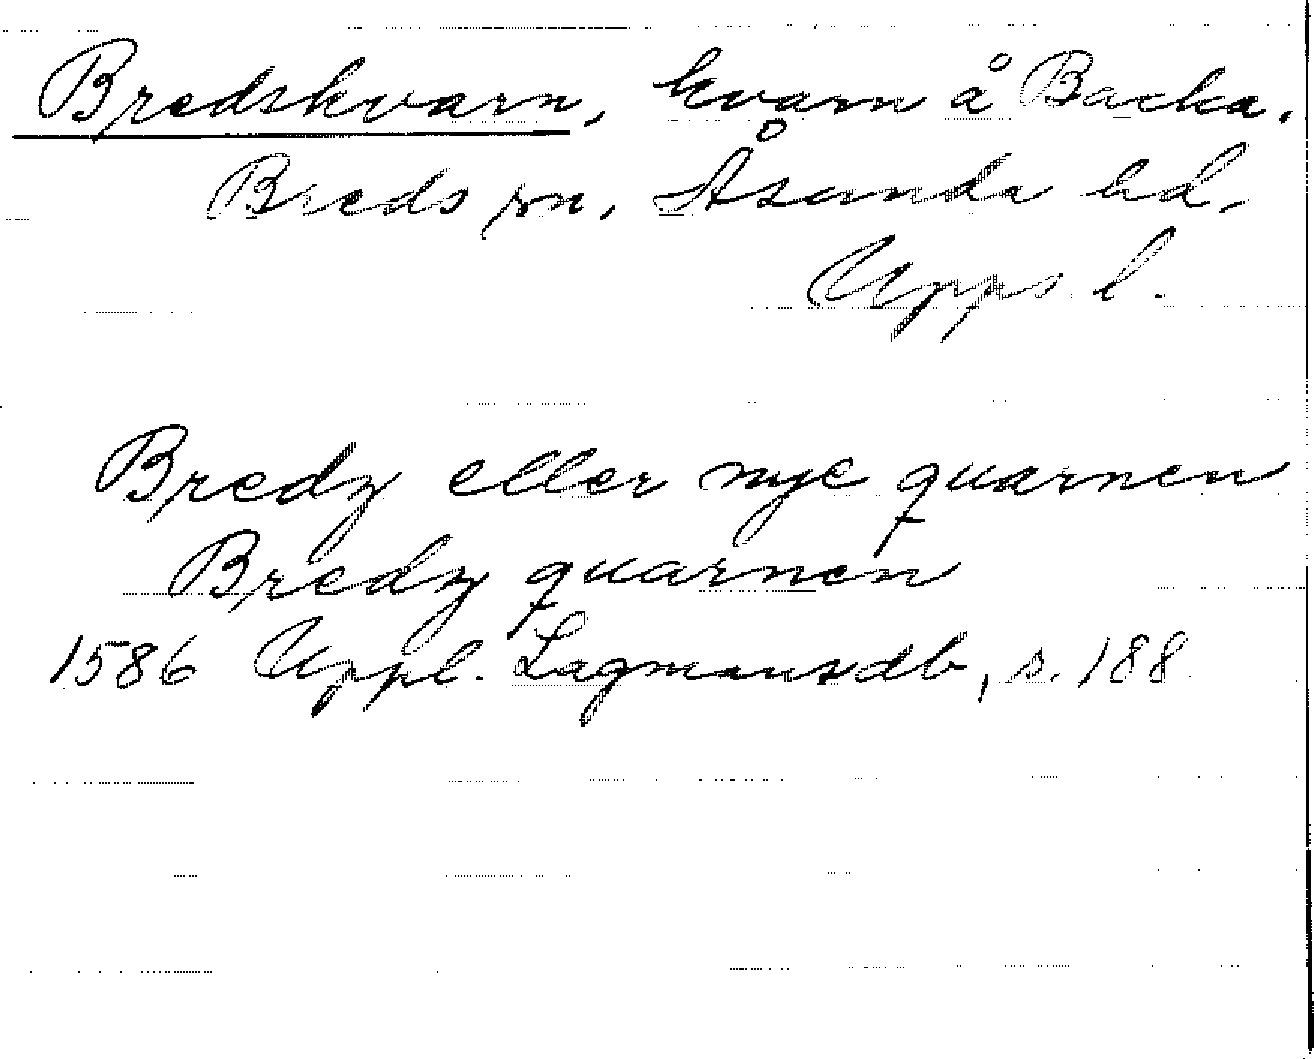 Bredskvarn, kvarn å Backa,
Breds sn, Åsunda hd,
Upps l.
Bredz eller nye quarnen
Bredz quarnen
1586 Uppl. Lagmansdb, s. 188